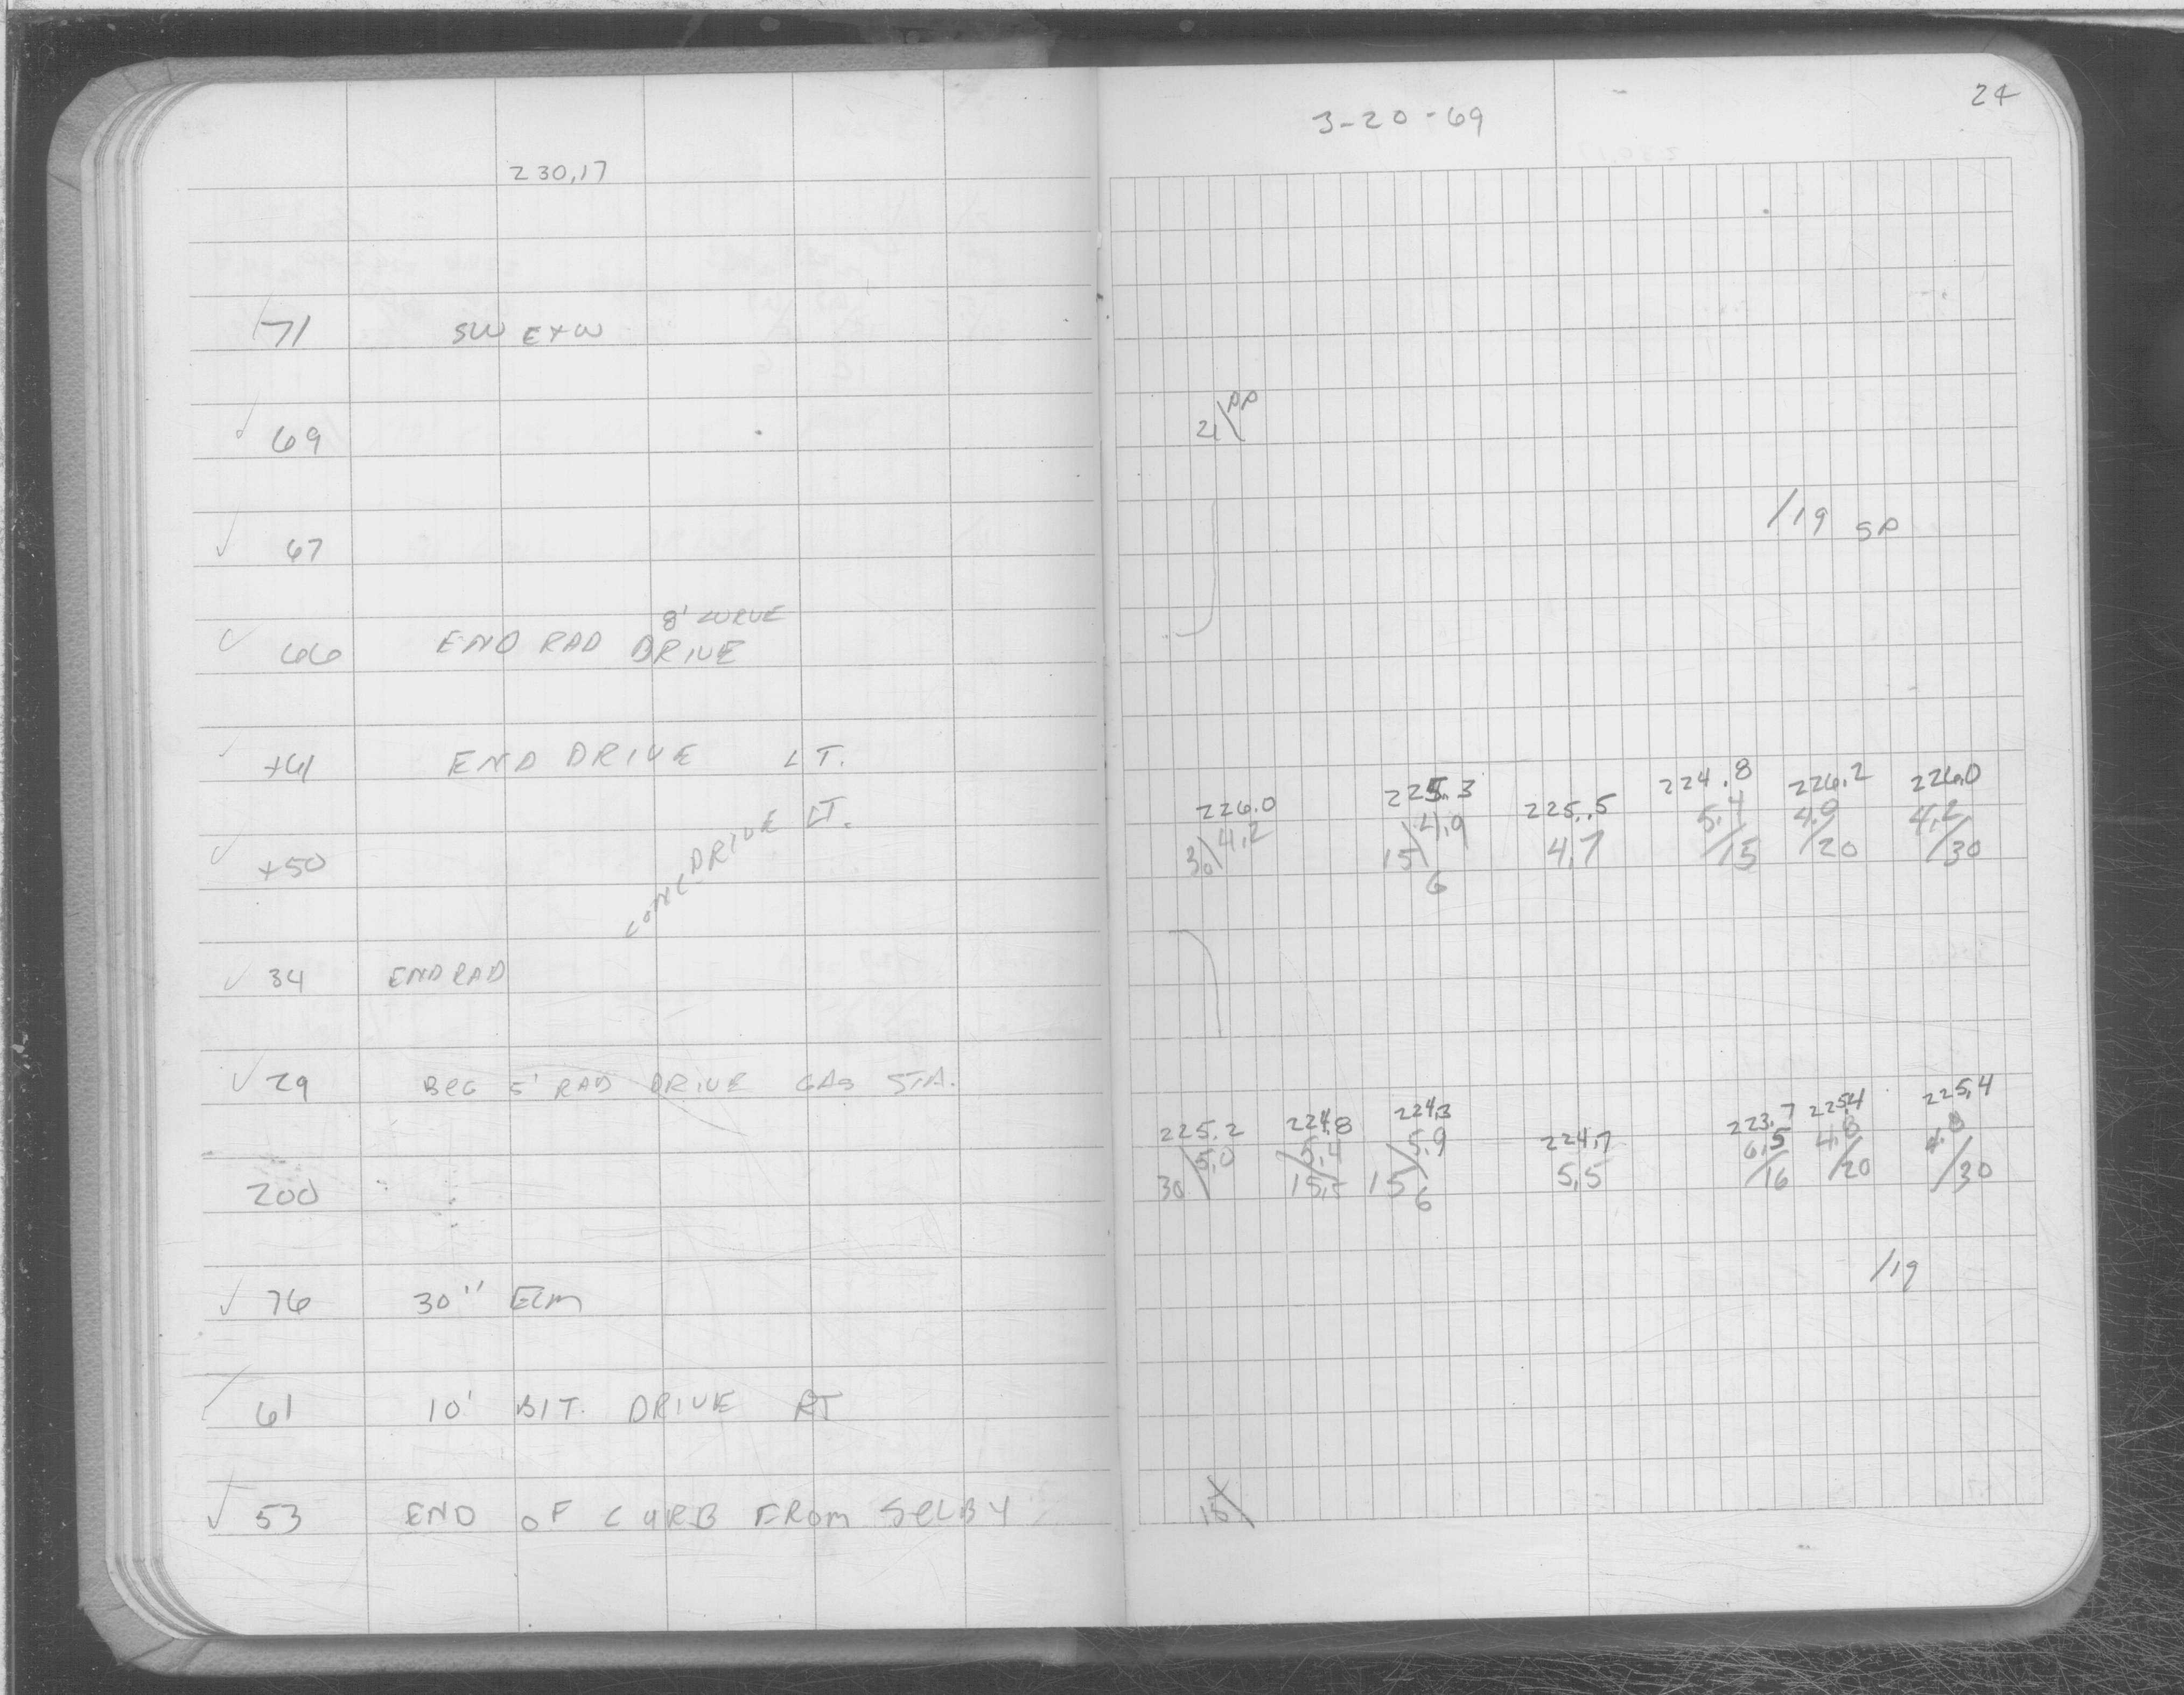 230.17
71 SW E+W
69
67
8' CURVE
66 END RAD DRIVE
+61 END DRIVE LT.
CONC DRIVE LT.
+50
34 END RAD
29 BEG 5' RAD DRIVE GAS STA.
200
76 30" ELM
61 10' BIT. DRIVE RT
53 END OF CURB FROM SELBY
24
3-20-69
21\PP
/19 SP
226.0 225.3 225.5 224.8 226.2 226.0
4.2 4.9 4.7 5.4 4.0 4.2
30 15 /15 /20 /30
6
225.2 224.8 224.3 224.7 223.7 225.4 225.4
5.0 5.4 5.9 5.5 6.5 4.8 4.8
30 15.5 15 /16 /20 /30
6
/19
15